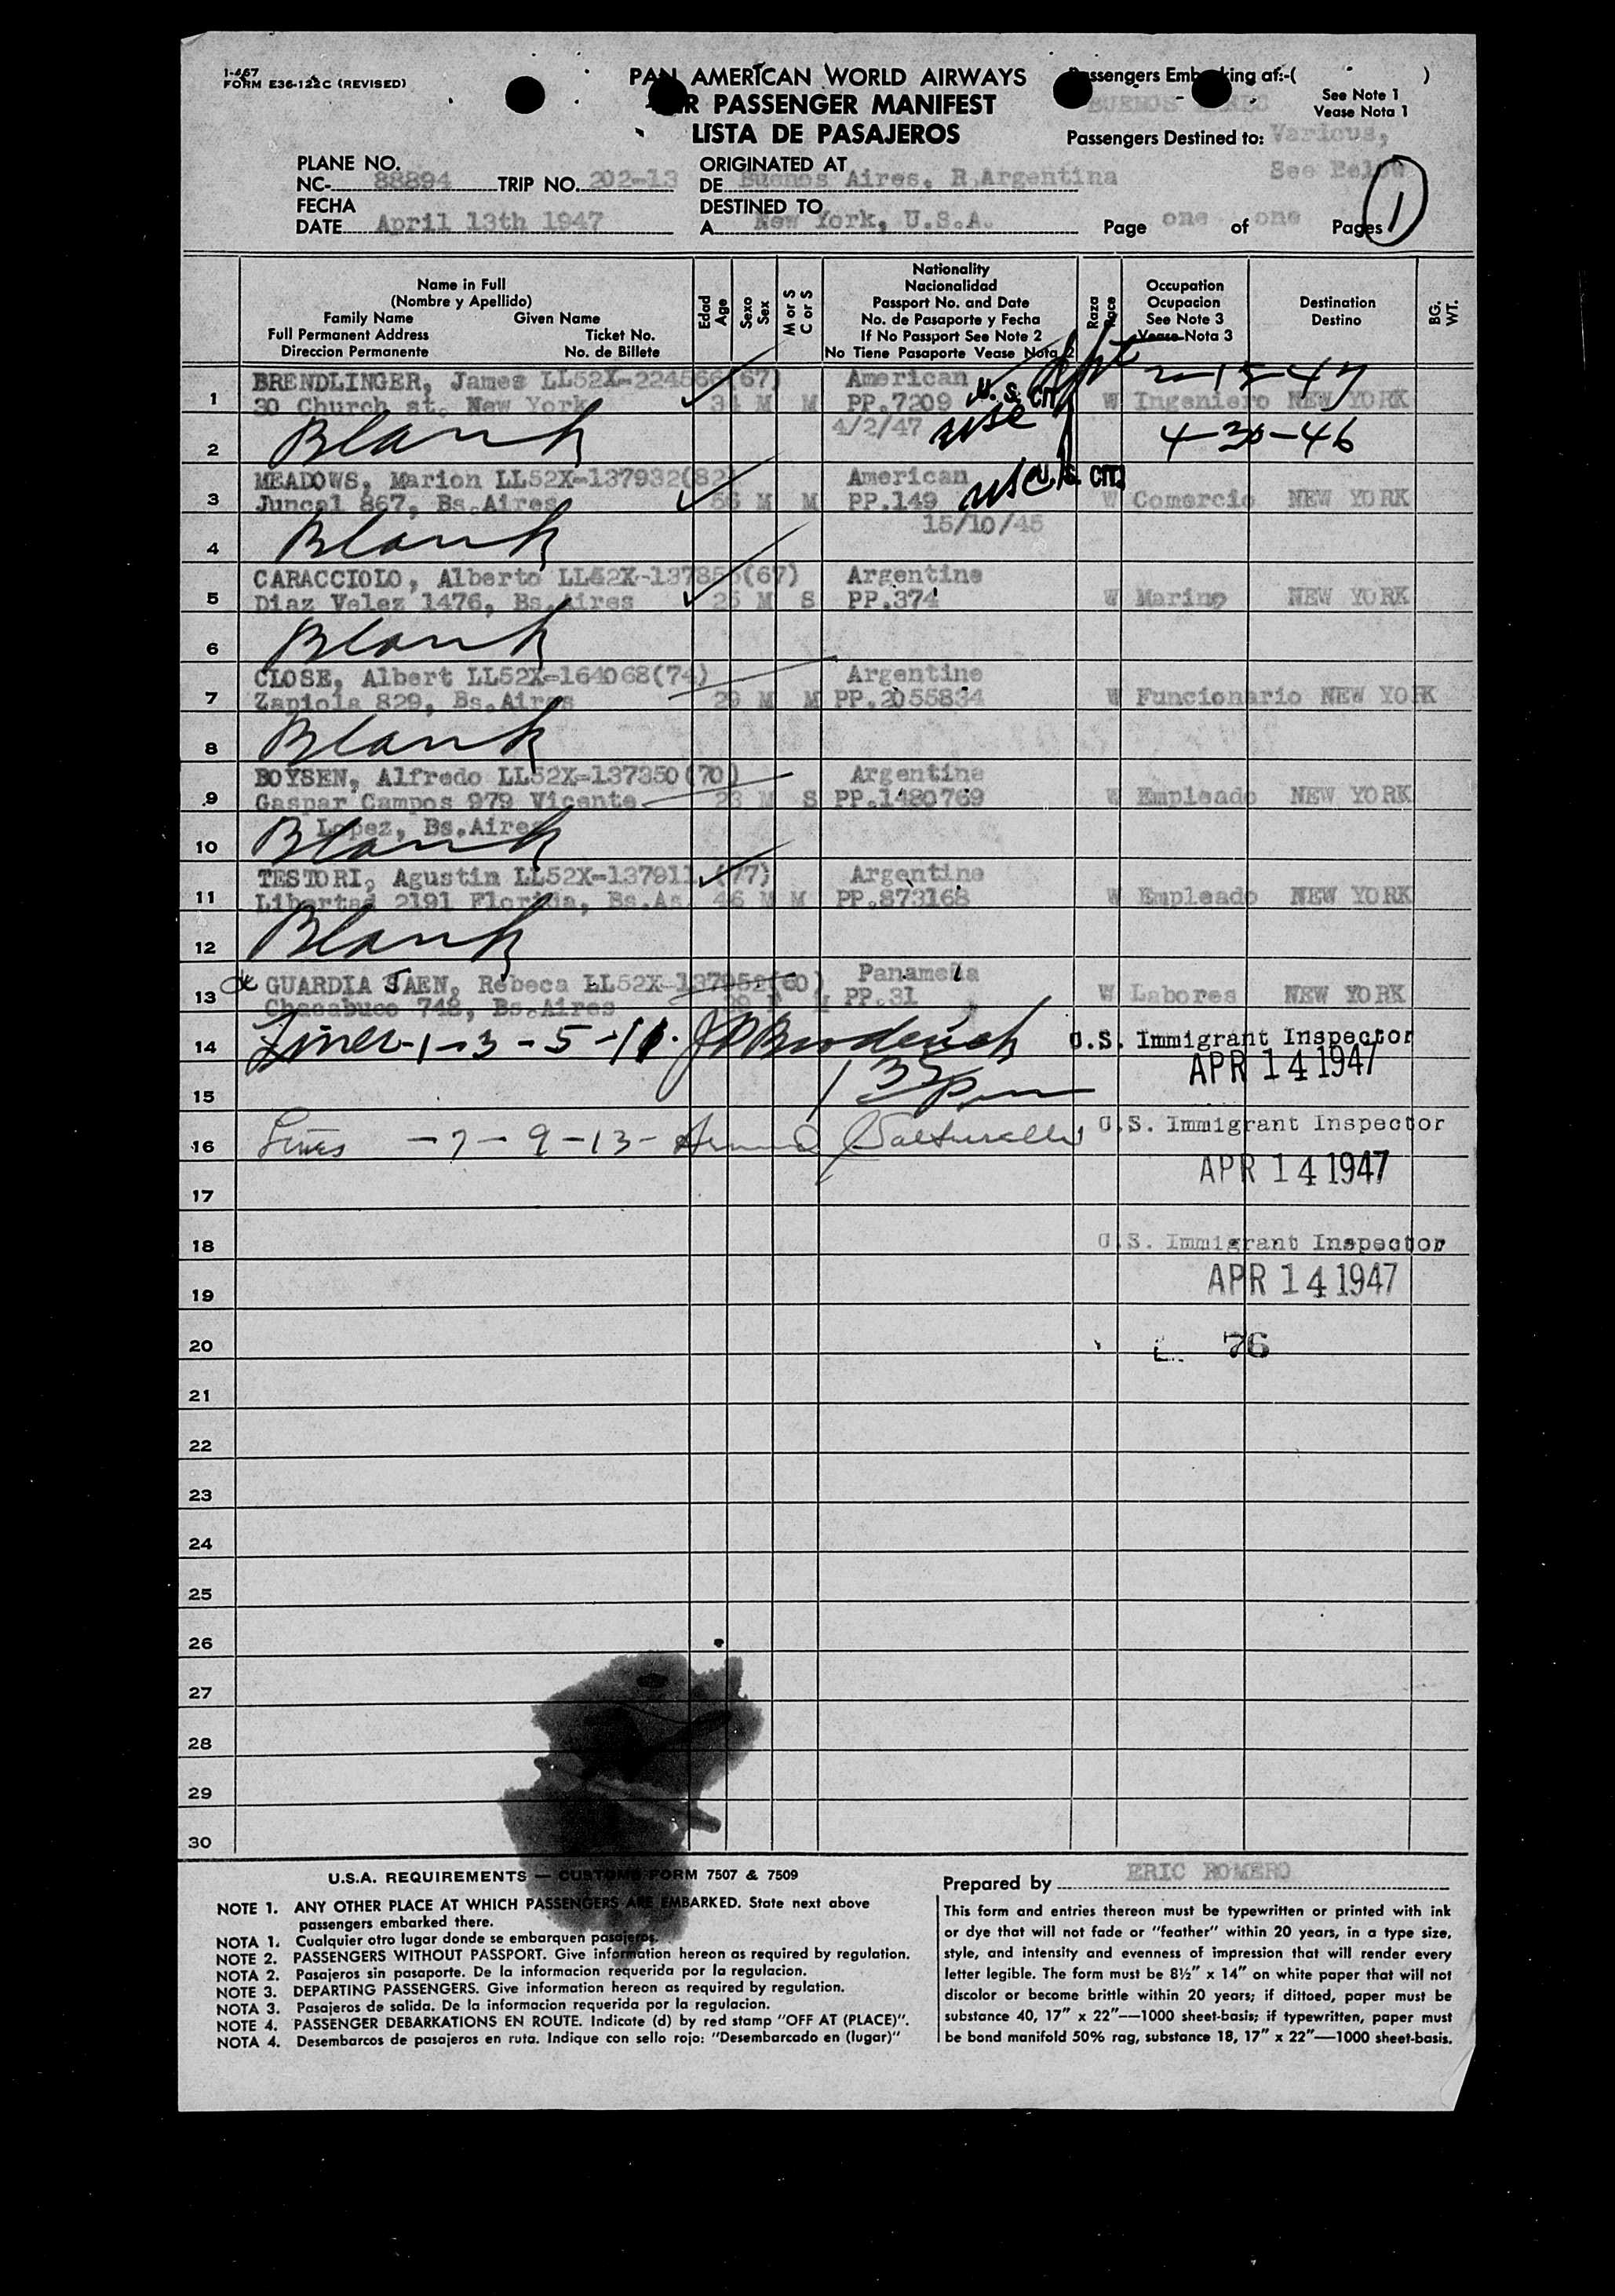 1-467
FORM E36-122C (REVISED)
PAN AMERICAN WORLD AIRWAYS
PASSENGER MANIFEST
LISTA DE PASAJEROS
Passengers Embarking at:-( )
BUENOS AIRES
See Note 1
Vease Nota 1
Passengers Destined to: Various,
See Below
PLANE NO.
NC- 88894 TRIP NO. 202-13
ORIGINATED AT
DE Buenos Aires, R.Argentina
FECHA
DATE April 13th 1947
DESTINED TO
A New York, U.S.A.
Page one of one Pages
1
Name in Full
(Nombre y Apellido)
Family Name Given Name
Full Permanent Address Ticket No.
Direccion Permanente No. de Billete
Edad
Age
Sexo
Sex
M or S
C or S
Nationality
Nacionalidad
Passport No. and Date
No. de Pasaporte y Fecha
If No Passport See Note 2
No Tiene Pasaporte Vease Nota 2
Raza
Race
Occupation
Ocupacion
See Note 3
Vease Nota 3
Destination
Destino
BG.
WT.
BRENDLINGER, James LL52X-224566(67) American 2-15-47
1 30 Church st. New York 34 M M PP.7209 U.S. CIT W Ingeniero NEW YORK
2 Blank 4/2/47 4-30-46
MEADOWS, Marion LL52X-137932(82) American U.S. CIT
3 Juncal 867, Bs.Aires 56 M M PP.149 W Comercio NEW YORK
15/10/45
4 Blank
CARACCIOLO, Alberto LL52X-137855(67) Argentine
5 Diaz Velez 1476, Bs.Aires 25 M S PP.374 W Marino NEW YORK
6 Blank
CLOSE, Albert LL52X-164068(74) Argentine
7 Zapiola 829, Bs.Aires 29 M M PP.2055834 W Funcionario NEW YORK
8 Blank
BOYSEN, Alfredo LL52X-137350(70) Argentine
9 Gaspar Campos 979 Vicente 23 M S PP.1480769 W Empleado NEW YORK
Lopez, Bs.Aires
10 Blank
TESTORI, Agustin LL52X-137911 (77) Argentine
11 Libertad 2191 Florida, Bs.As. 46 M M PP.873168 W Empleado NEW YORK
12 Blank
GUARDIA JAEN, Rebeca LL52X-137952(60) Panameña
13 Chacabuco 748, Bs.Aires 29 F M PP.31 W Labores NEW YORK
14 Lines-1-3-5-11. U.S. Immigrant Inspector
APR 14 1947
15 1 35 pm
16 Lines -7-9-13- U.S. Immigrant Inspector
APR 14 1947
17
18 U.S. Immigrant Inspector
19 APR 14 1947
20 76
21
22
23
24
25
26
27
28
29
30
U.S.A. REQUIREMENTS — CUSTOMS FORM 7507 & 7509
NOTE 1. ANY OTHER PLACE AT WHICH PASSENGERS ARE EMBARKED. State next above
passengers embarked there.
NOTA 1. Cualquier otro lugar donde se embarquen pasajeros.
NOTE 2. PASSENGERS WITHOUT PASSPORT. Give information hereon as required by regulation.
NOTA 2. Pasajeros sin pasaporte. De la informacion requerida por la regulacion.
NOTE 3. DEPARTING PASSENGERS. Give information hereon as required by regulation.
NOTA 3. Pasajeros de salida. De la informacion requerida por la regulacion.
NOTE 4. PASSENGER DEBARKATIONS EN ROUTE. Indicate (d) by red stamp "OFF AT (PLACE)".
NOTA 4. Desembarcos de pasajeros en ruta. Indique con sello rojo: "Desembarcado en (lugar)"
Prepared by ERIC ROMERO
This form and entries thereon must be typewritten or printed with ink
or dye that will not fade or "feather" within 20 years, in a type size,
style, and intensity and evenness of impression that will render every
letter legible. The form must be 8½" x 14" on white paper that will not
discolor or become brittle within 20 years; if dittoed, paper must be
substance 40, 17" x 22"—1000 sheet-basis; if typewritten, paper must
be bond manifold 50% rag, substance 18, 17" x 22"—1000 sheet-basis.